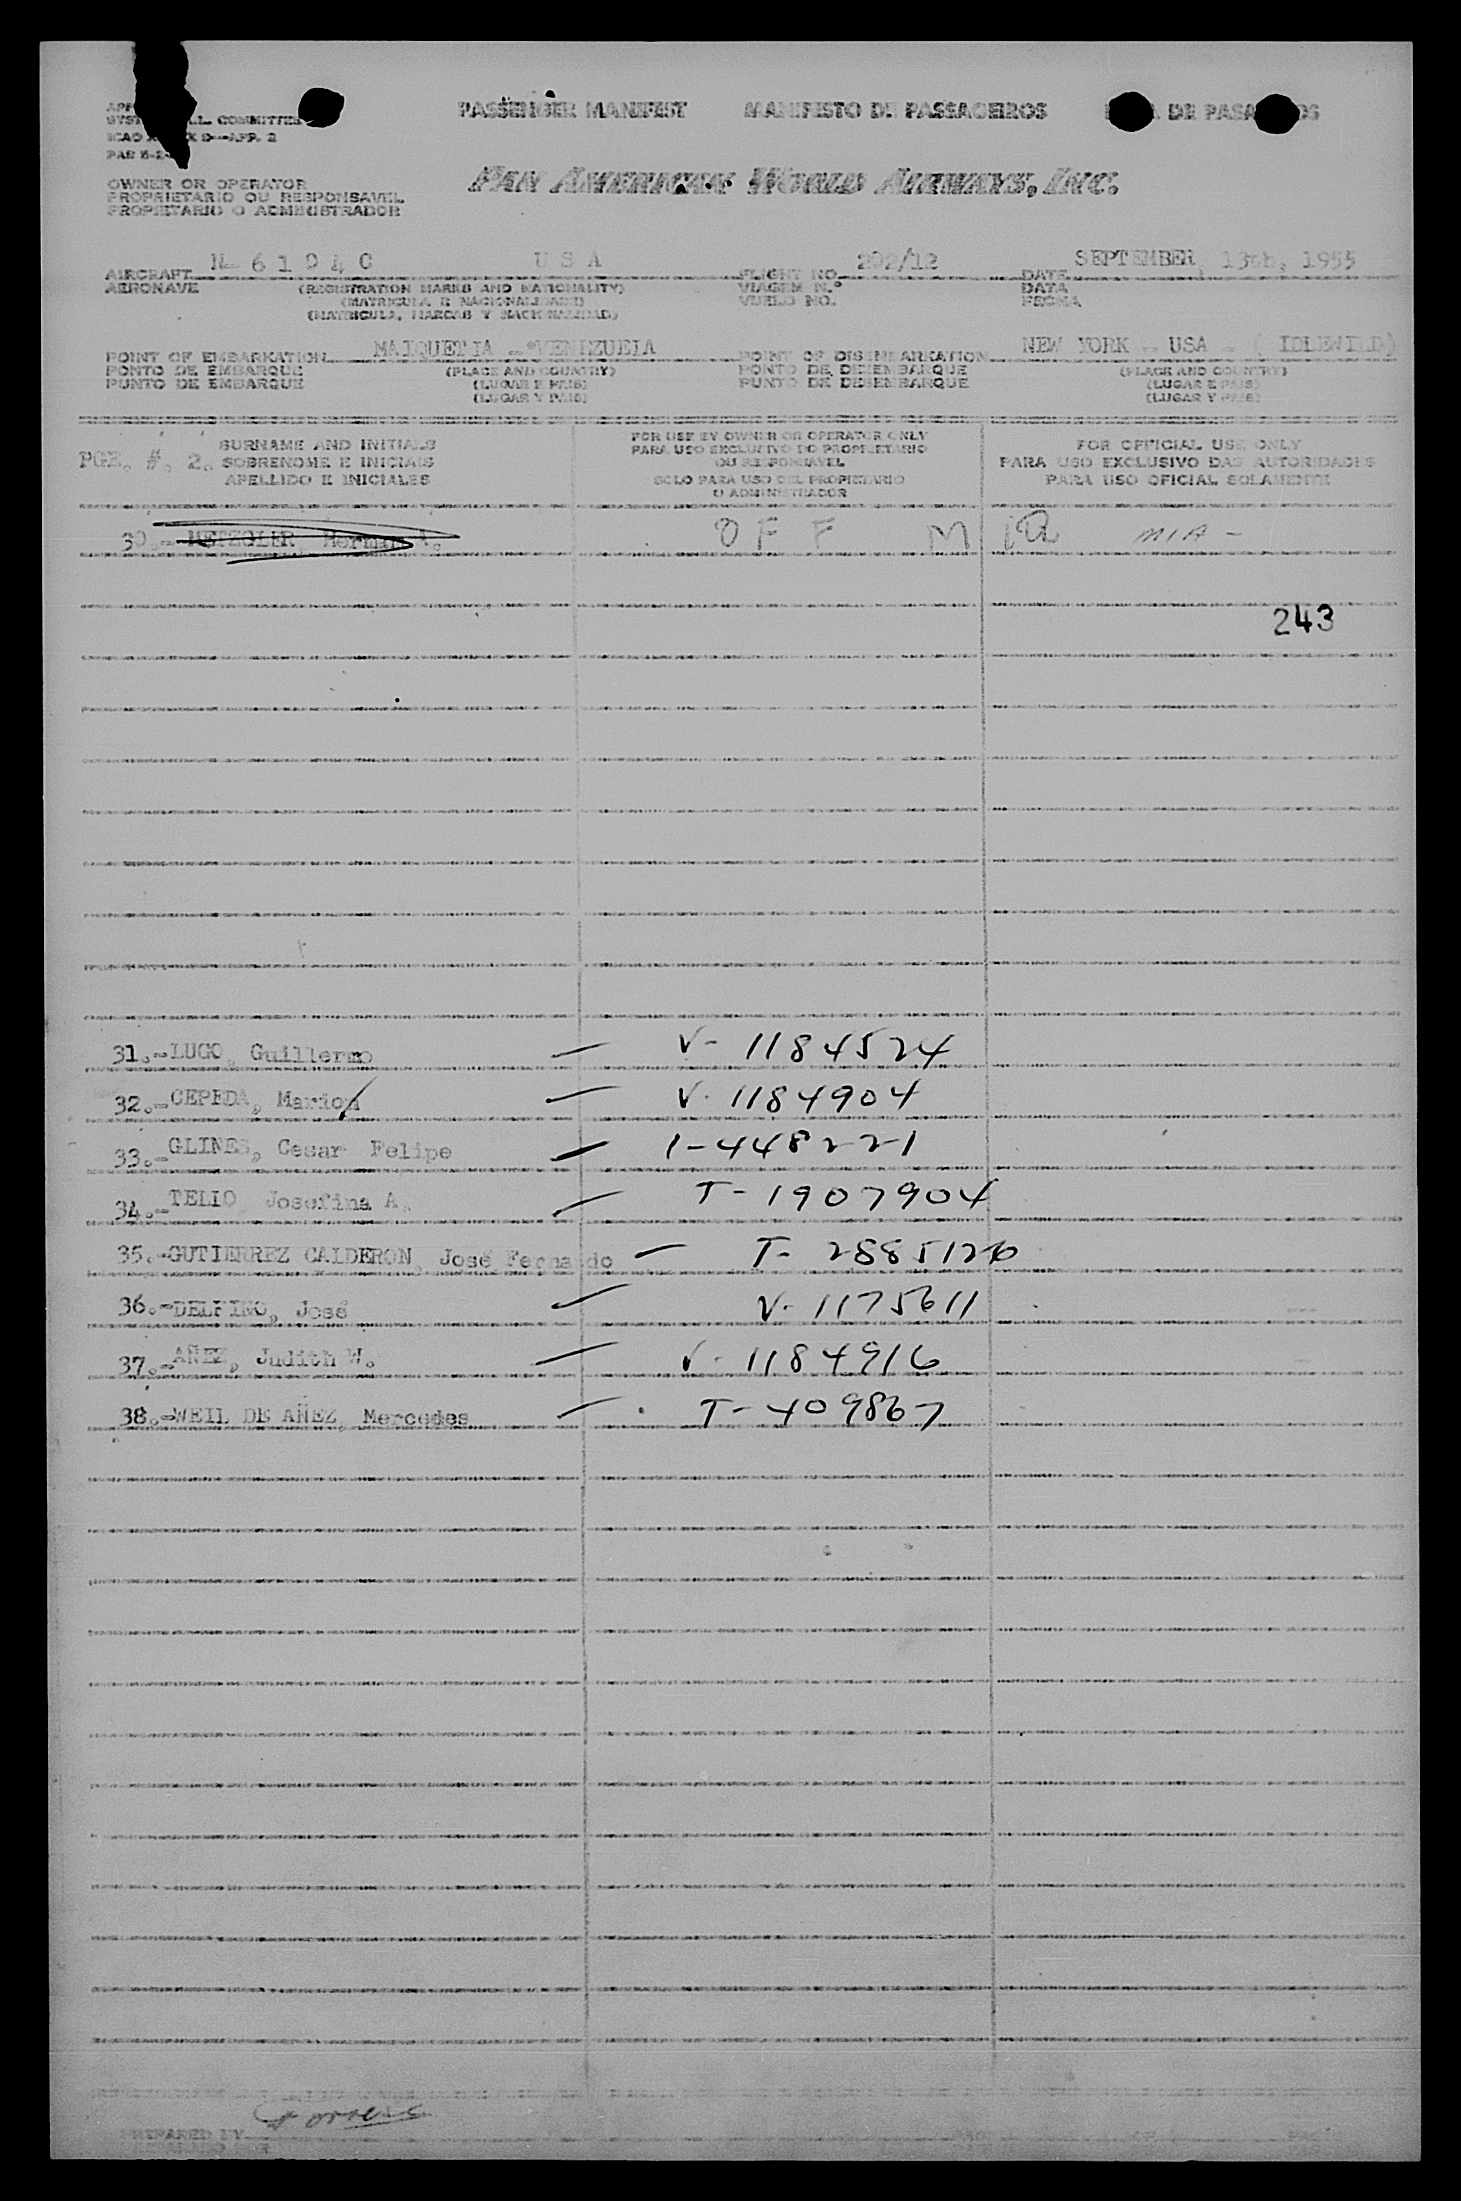 PASSENGER MANIFEST MANIFESTO DE PASSAGEIROS DE PASA OS
L. COMMITTEE
APP. 2
PAN AMERICAN WORLD AIRWAYS, INC.
OWNER OR OPERATOR
PROPRIETARIO OU RESPONSAVEL
PROPIETARIO O ADMINISTRADOR
AIRCRAFT N- 6 1 0 4 0 U S A FLIGHT NO. 202/12 DATE SEPTEMBER, 13th, 1955
AERONAVE (REGISTRATION MARKS AND NATIONALITY) VIAGEM N.º DATA
(MATRICULA E NACIONALIDADE) VUELO NO. FECHA
(MATRICULA, MARCAS Y NACIONALIDAD)
POINT OF EMBARKATION MAIQUETIA - VENEZUELA POINT OF DISEMBARKATION NEW YORK - USA - ( IDLEWILD)
PONTO DE EMBARQUE (PLACE AND COUNTRY) PONTO DE DESEMBARQUE (PLACE AND COUNTRY)
PUNTO DE EMBARQUE (LUGAR E PAIS) PUNTO DE DESEMBARQUE (LUGAR E PAIS)
(LUGAR Y PAIS) (LUGAR Y PAIS)
PGE. #. 2.
SURNAME AND INITIALS
SOBRENOME E INICIAIS
APELLIDO E INICIALES
FOR USE BY OWNER OR OPERATOR ONLY
PARA USO EXCLUSIVO DO PROPRIETARIO
OU RESPONSAVEL
SOLO PARA USO DEL PROPIETARIO
O ADMINISTRADOR
FOR OFFICIAL USE ONLY
PARA USO EXCLUSIVO DAS AUTORIDADES
PARA USO OFICIAL SOLAMENTE
30.- Herman A. O F F M I A MIA -
243
31.- LUGO, Guillermo — V- 1184524
32.- CEPEDA, Marion — V- 1184904
33.- GLINES, Cesar Felipe — 1-448221
34.- TELLO Josefina A. — T- 1907904
35.- GUTIERREZ CALDERON, José Fernando — T- 2885126
36.- DELFINO, José — V- 1175611
37.- AÑEZ, Judith W. — V- 1184916
38.- WEIL DE AÑEZ, Mercedes — T- 409867
PREPARED BY